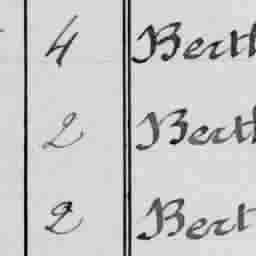 4 Berth
2 Berth
2 Bert